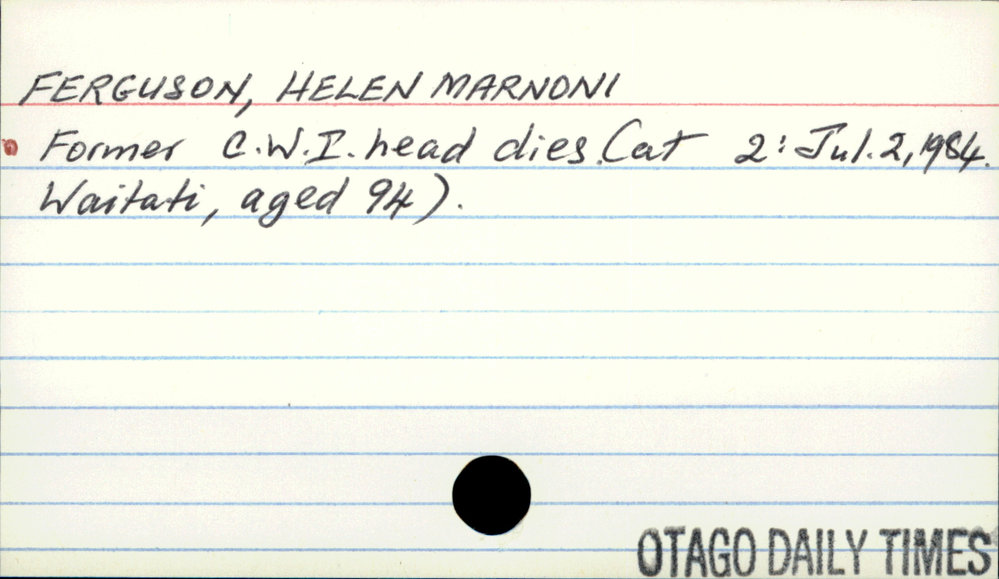 FERGUSON, HELEN MARNONI
Former C.W.I. head dies (at 2: Jul. 2, 1984.
Waitati, aged 94).
OTAGO DAILY TIMES